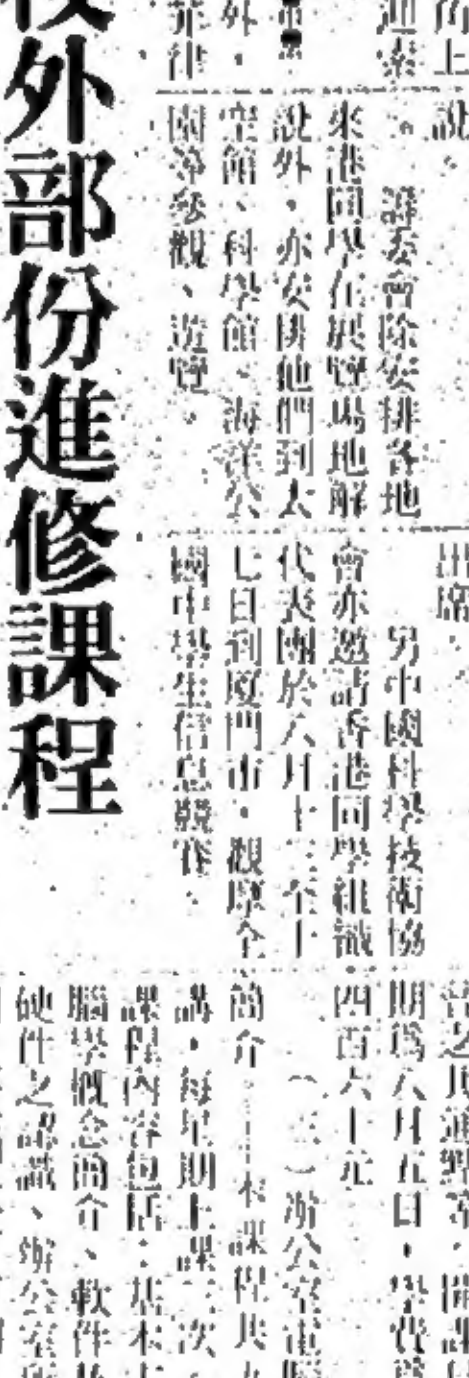 說。
籌委會除安排各地
來港同學在展覽場地解
說外，亦安排他們到太
空館、科學館、海洋公
園等參觀、遊覽。
出席。
另中國科學技術協
會亦邀請香港同學組織
代表團於八月十三至十
七日到廈門市，觀摩全
國中學生信息競賽。
校外部份進修課程
期爲八月五日，學費
四百六十元
（三）辦公室電腦
簡介——本課程共
講，每星期上課二次
課程內容包括：基本
腦學概念簡介、軟件
硬件之認識、辦公室